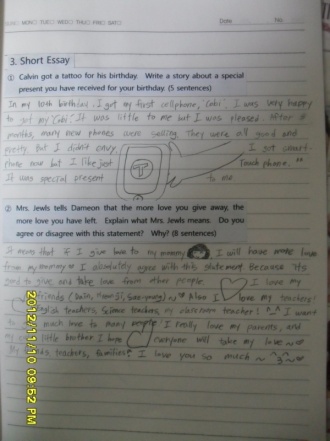 MON TUE WED THU FRI SAT Date No.
3. Short Essay
① Calvin got a tattoo for his birthday. Write a story about a special
present you have received for your birthday. (5 sentences)
In my 10th birthday, I got my first cellphone, Cobi. I was very happy
to got my Cobi. It was little to me but I was pleased. After
months, many new phones were selling. They were all good and
pretty. But I didn't envy. I got smart-
phone now but I like just Touch phone. ^^
It was special present to me.
T
② Mrs. Jewls tells Dameon that the more love you give away, the
more love you have left. Explain what Mrs. Jewls means. Do you
agree or disagree with this statement? Why? (8 sentences)
It means that if I give love to my mommy I will have more love
from my mommy. I absolutely agree with this statement. Because its
good to give and take love from other people. I love my
friends ~ Also I love my teachers!
English teachers, Science teachers, my classroom teacher! ^-^ I want
much love to many people! I really love my parents, and
my little brother. I hope everyone will take my love ~
teachers, families! I love you so much ~ ^3^ ~
2012/11/10 09:52 PM